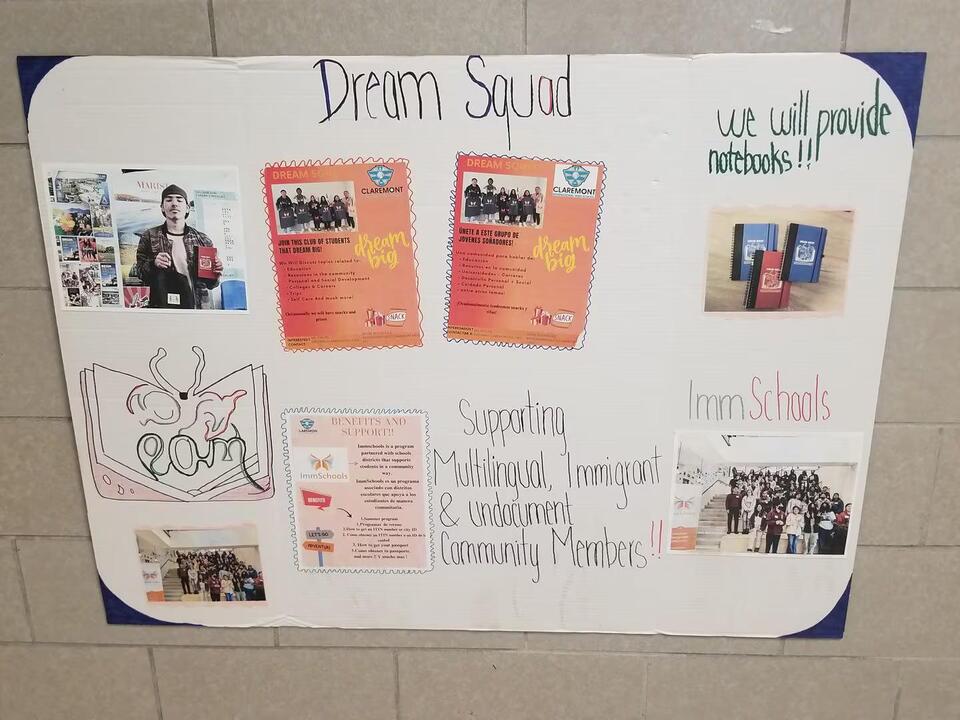 Dream Squad
We will provide
notebooks!!!
MARIS
DREAM SQU
CLAREMONT
JOIN THIS CLUB OF STUDENTS
THAT DREAM BIG!
dream
big
We Will Discuss topics related to:
- Education
- Resources in the community
Personal and Social Development
- Colleges & Careers
- Trips
- Self Care And much more!
Occasionally we will have snacks and
prizes
SNACK
INTERESTED?
CONTACT:
DREAM SQ
CLAREMONT
ÚNETE A ESTE GRUPO DE
JOVENES SOÑADORES!
dream
big
Una comunidad para hablar de:
- Educación
- Recursos en la comunidad
- Universidades - Carreras
- Desarrollo Personal + Social
- Cuidado Personal
- entre otros temas!
¡Ocasionalmente tendremos snacks y
rifas!
SNACK
INTERESADO?
CONTACTAR A
ImmSchools
Dream
CLAREMONT
BENEFITS AND
SUPPORT!!
ImmSchools
Immschools is a program
partnered with schools
districts that supports
students in a community
way.
ImmSchools es un programa
asociado con distritos
escolares que apoya a los
estudiantes de manera
comunitaria.
BENEFITS
1.Summer program
1.Programas de verano
2.How to get an ITIN number or city ID
2. Como obtener un ITIN number o un ID de la
ciudad
3. How to get your passport
3.Como obtener tu pasaporte
and more !! Y mucho mas !
LET'S GO
ADVENTURE
Supporting
Multilingual, Immigrant
& undocument
Community Members!!